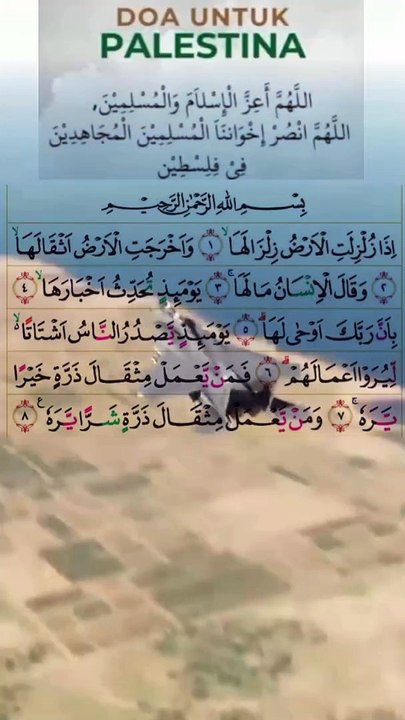 DOA UNTUK
PALESTINA
اللَّهُمَّ أَعِزَّ الْإِسْلَامَ وَالْمُسْلِمِيْنَ,
اللَّهُمَّ انْصُرْ إِخْوَانَنَا الْمُسْلِمِيْنَ الْمُجَاهِدِيْنَ
فِيْ فِلِسْطِيْن
بِسْمِ اللهِ الرَّحْمٰنِ الرَّحِيْمِ
اِذَا زُلْزِلَتِ الْاَرْضُ زِلْزَالَهَاۙ ۝١ وَاَخْرَجَتِ الْاَرْضُ اَثْقَالَهَاۙ
۝٢ وَقَالَ الْاِنْسَانُ مَا لَهَاۚ ۝٣ يَوْمَىِٕذٍ تُحَدِّثُ اَخْبَارَهَاۙ ۝٤
بِاَنَّ رَبَّكَ اَوْحٰى لَهَاۗ ۝٥ يَوْمَىِٕذٍ يَّصْدُرُ النَّاسُ اَشْتَاتًا ەۙ
لِّيُرَوْا اَعْمَالَهُمْۗ ۝٦ فَمَنْ يَّعْمَلْ مِثْقَالَ ذَرَّةٍ خَيْرًا
يَّرَهٗۚ ۝٧ وَمَنْ يَّعْمَلْ مِثْقَالَ ذَرَّةٍ شَرًّا يَّرَهٗ ࣖ ۝٨